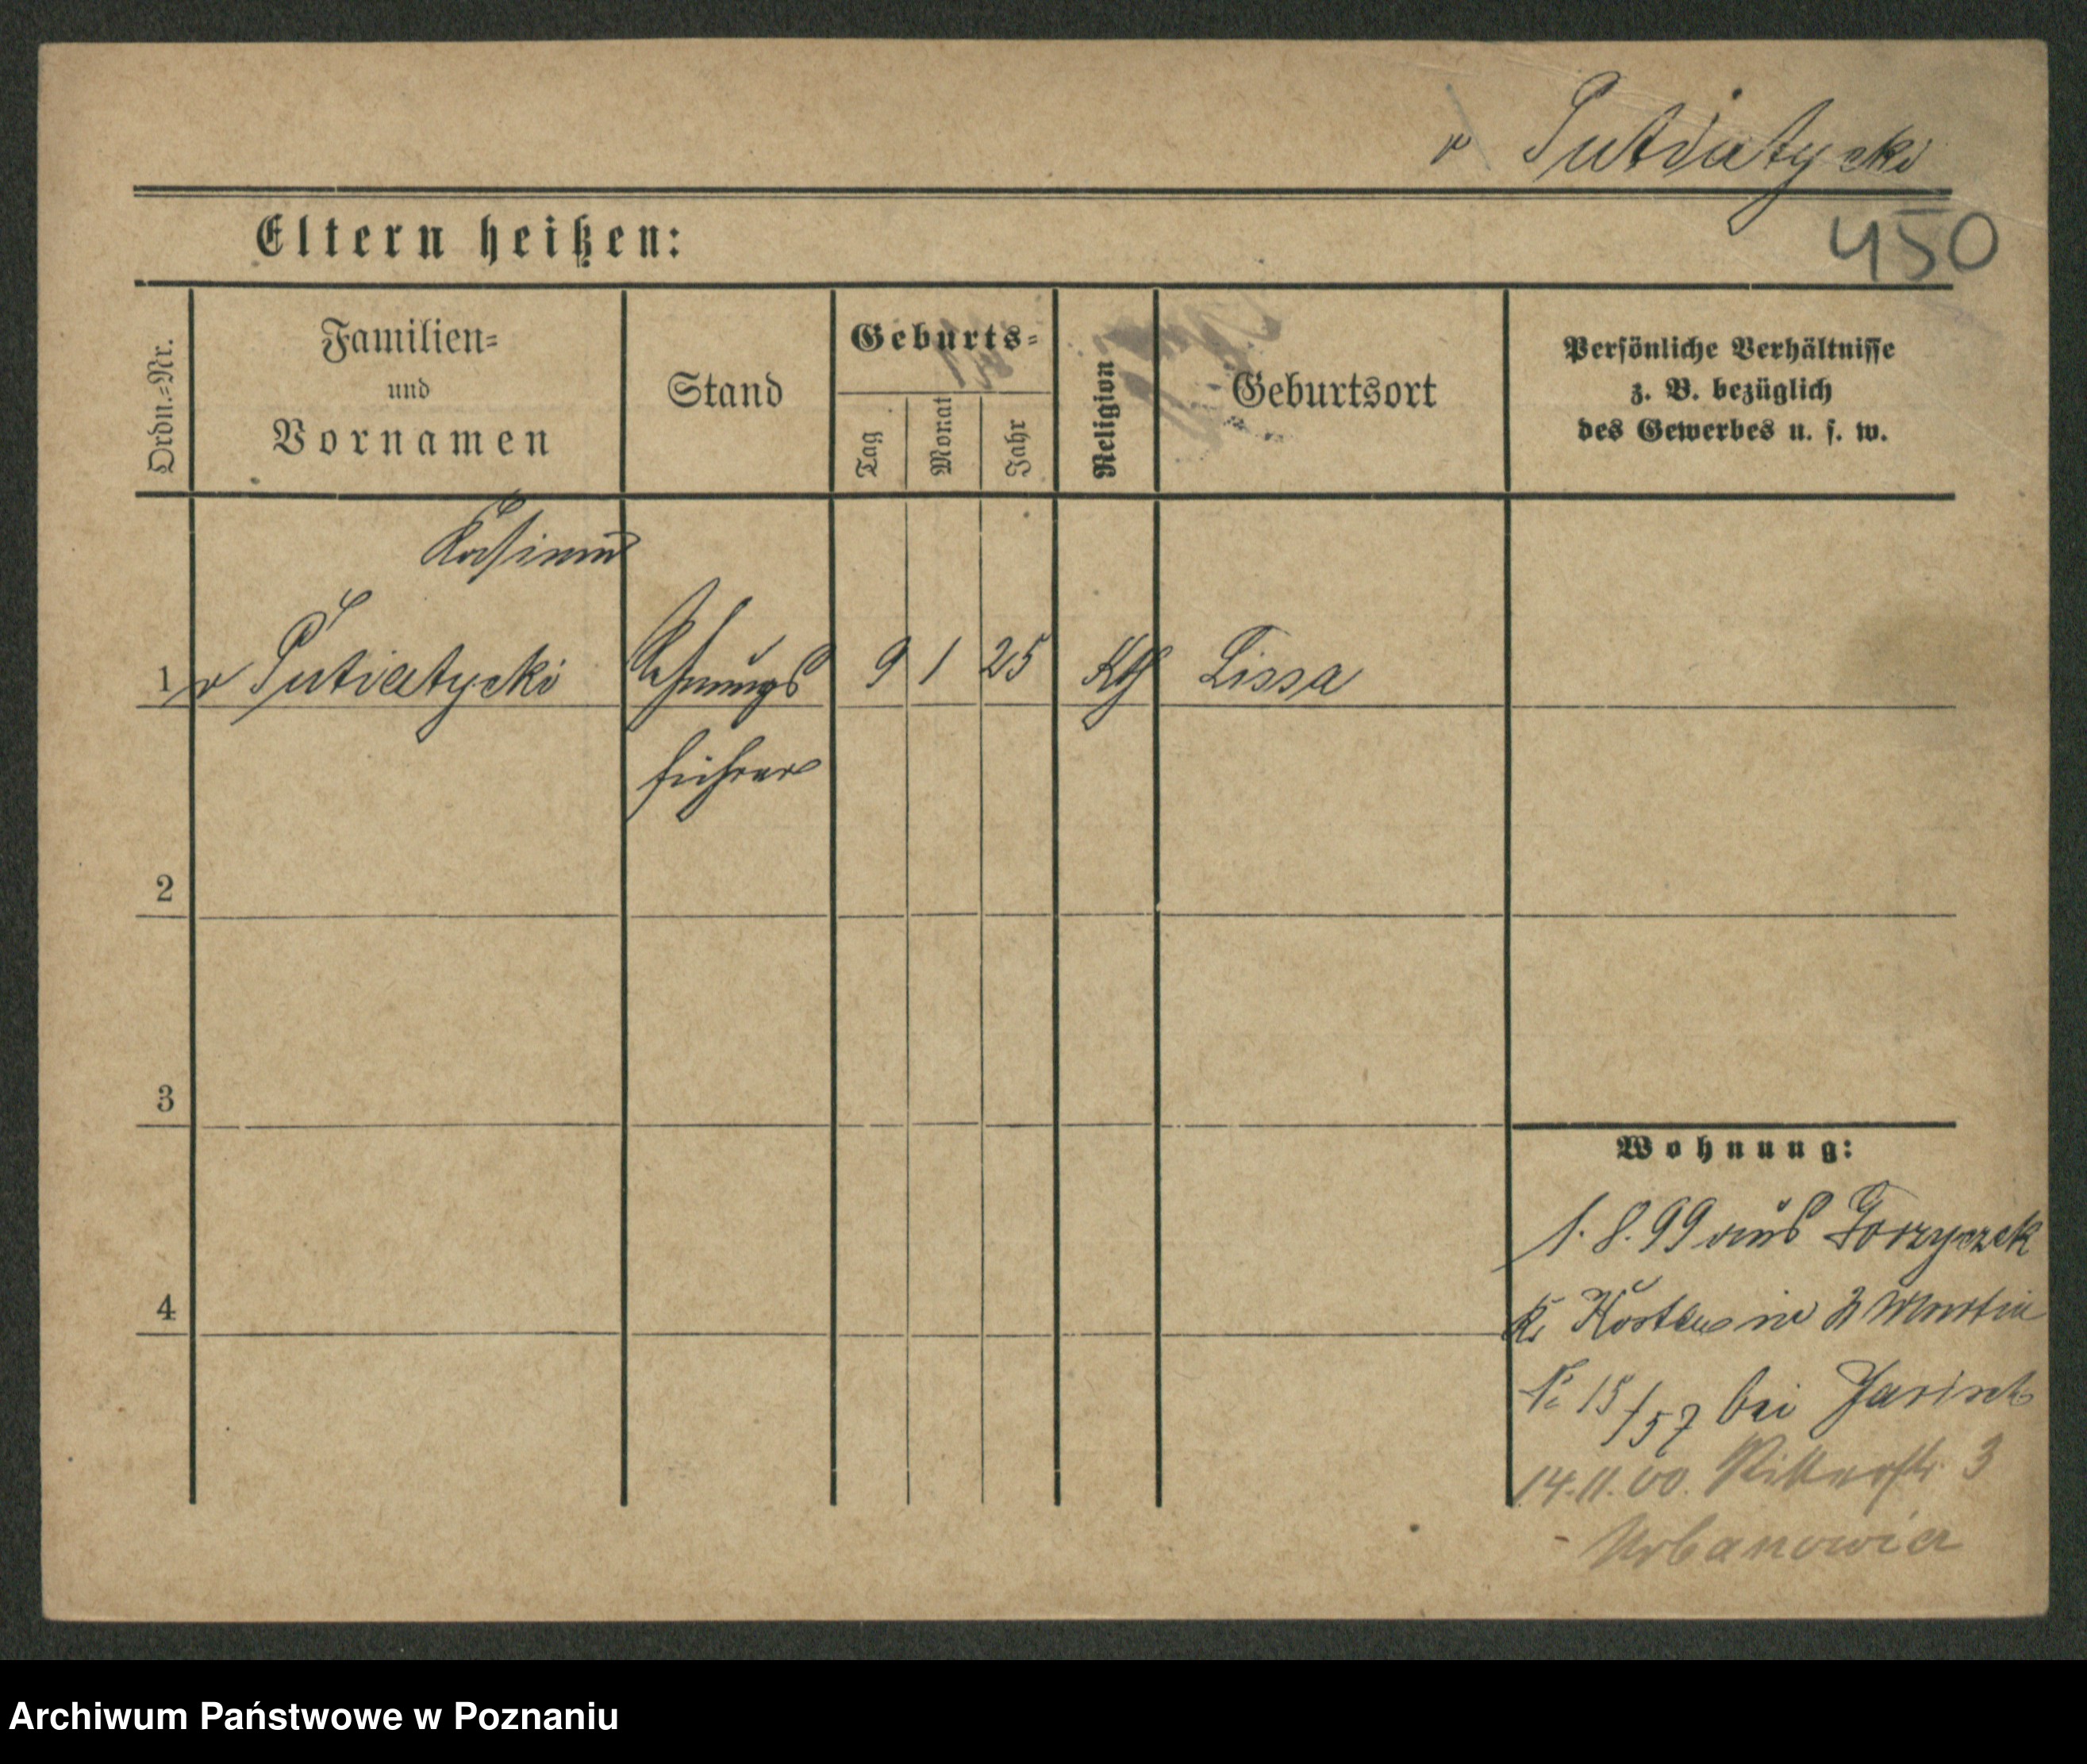 v Putiatycki
450
Eltern heißen:
Ordn.=Nr.
Familien=
und
Vornamen
Stand
Geburts=
Tag
Monat
Jahr
Religion
Geburtsort
Persönliche Verhältnisse
z. B. bezüglich
des Gewerbes u. s. w.
Kasimir
1 v Putiatycki Rechnungs 9 1 25 Kth Lissa
führer
2
3
4
Wohnung:
1.8.99 aus Gorzyczek
Kr. Kosten in Martin
No 15/57 bei
14.11.00. Ritterstr. 3
- Urbanowicz
Archiwum Państwowe w Poznaniu